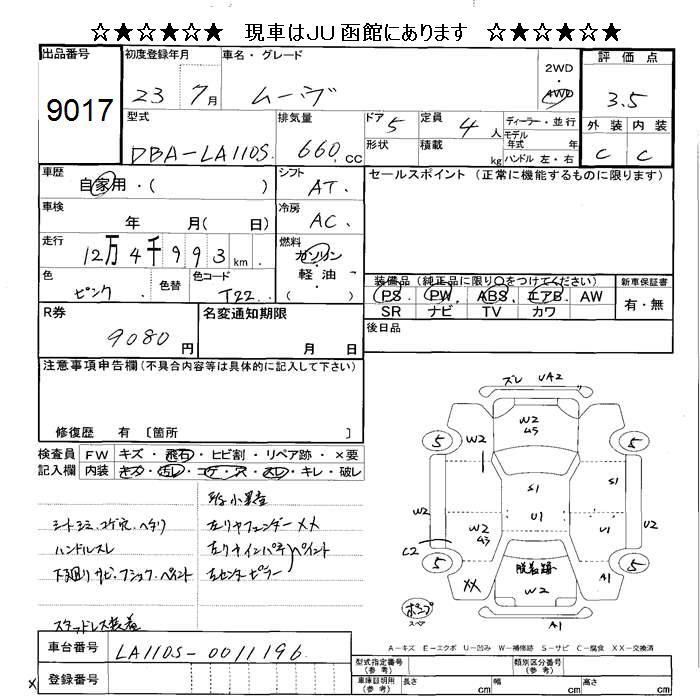 ☆★☆★☆★ 現車はJU函館にあります ☆★☆★☆★
出品番号 9017
初度登録年月 23 7月
車名・グレード ムーヴ
2WD
4WD
評価点 3.5
外装 C 内装 C
型式 DBA-LA110S
排気量 660 CC
ドア 5
定員 4 人
ディーラー・並行
形状
積載 kg
モデル年式 年
ハンドル 左・右
車歴 自家用・( )
シフト AT.
セールスポイント(正常に機能するものに限ります)
車検 年 月( 日)
冷房 AC.
走行 12万4千993km
燃料 ガソリン・軽油・( )
色 ピンク
色替
色コード T22
装備品(純正品に限り○をつけてください)
PS PW ABS エアB AW
SR ナビ TV カワ
新車保証書
有・無
R券 9080円
名変通知期限 月 日
後日品
注意事項申告欄(不具合内容等は具体的に記入して下さい)
修復歴 有 〔箇所 〕
検査員記入欄
FW キズ・飛石・ヒビ割・リペア跡・×要
内装 キズ・汚レ・コゲ・穴・スレ・キレ・破レ
シートシミ.コゲ穴.ヘタリ
左リヤフェンダーXX
ハンドルスレ
左リヤインパネ ペイント
下廻りサビ.フショク.ペイント
左センターピラー
スタッドレス装着
ズレ UA2
W2
45
5
W2
5
S1
S1
W2
W2
43
U1
U1
U2
C2
5
脱着跡
5
XX
W2
A1
A1
ポンプ
スペア
A-キズ E-エクボ U-凹み W-補修跡 S-サビ C-腐食 XX-交換済
車台番号 LA110S-0011196
登録番号
型式指定番号(参考)
類別区分番号(参考)
車庫証明用(参考) 長さ cm 幅 cm 高さ cm
X